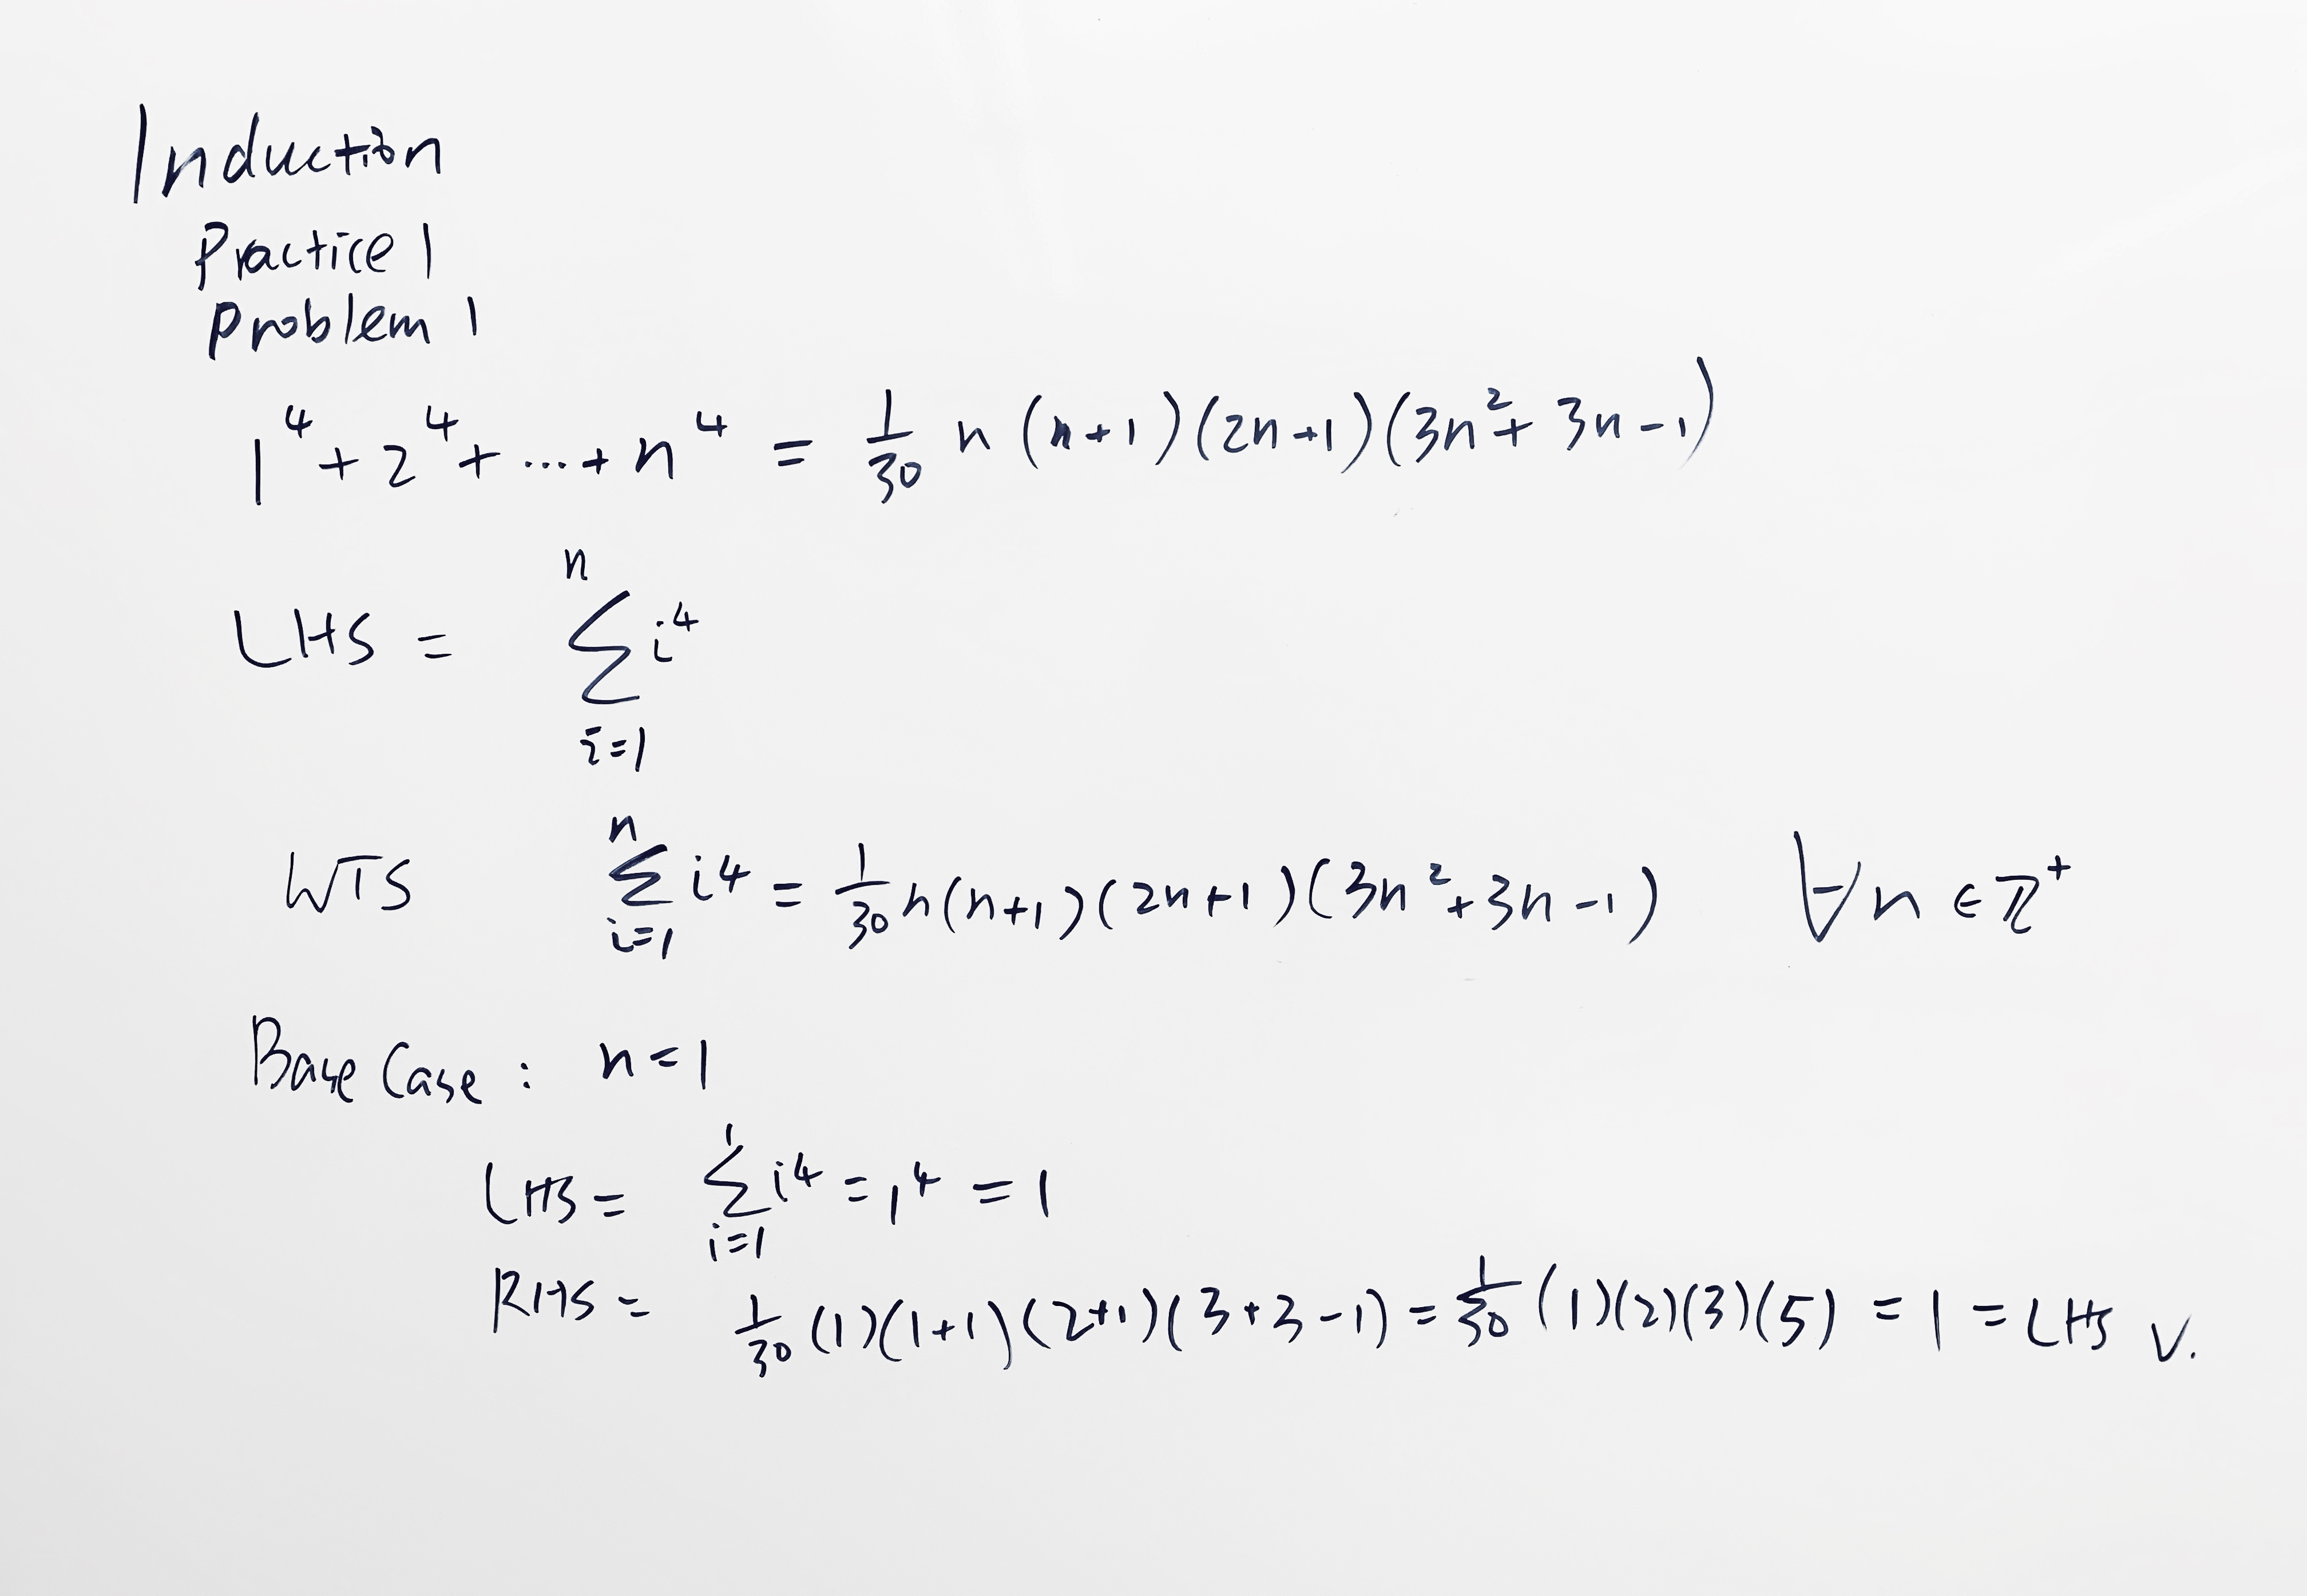 Induction
Practice 1
Problem 1
1⁴ + 2⁴ + ... + n⁴ = 1/30 n (n+1)(2n+1)(3n² + 3n - 1)
LHS = ∑_{i=1}^{n} i⁴
WTS ∑_{i=1}^{n} i⁴ = 1/30 n(n+1)(2n+1)(3n² + 3n - 1) ∀ n ∈ ℤ⁺
Base Case : n = 1
LHS = ∑_{i=1}^{1} i⁴ = 1⁴ = 1
RHS = 1/30 (1)(1+1)(2+1)(3+3-1) = 1/30 (1)(2)(3)(5) = 1 = LHS √.